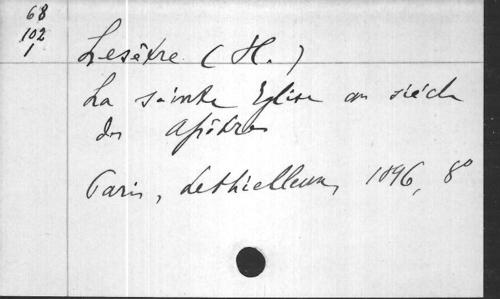 68
102
1
Lesêtre (H.)
La sainte Eglise au siècle
des Apôtres
Paris, Lethielleux, 1896, 8°